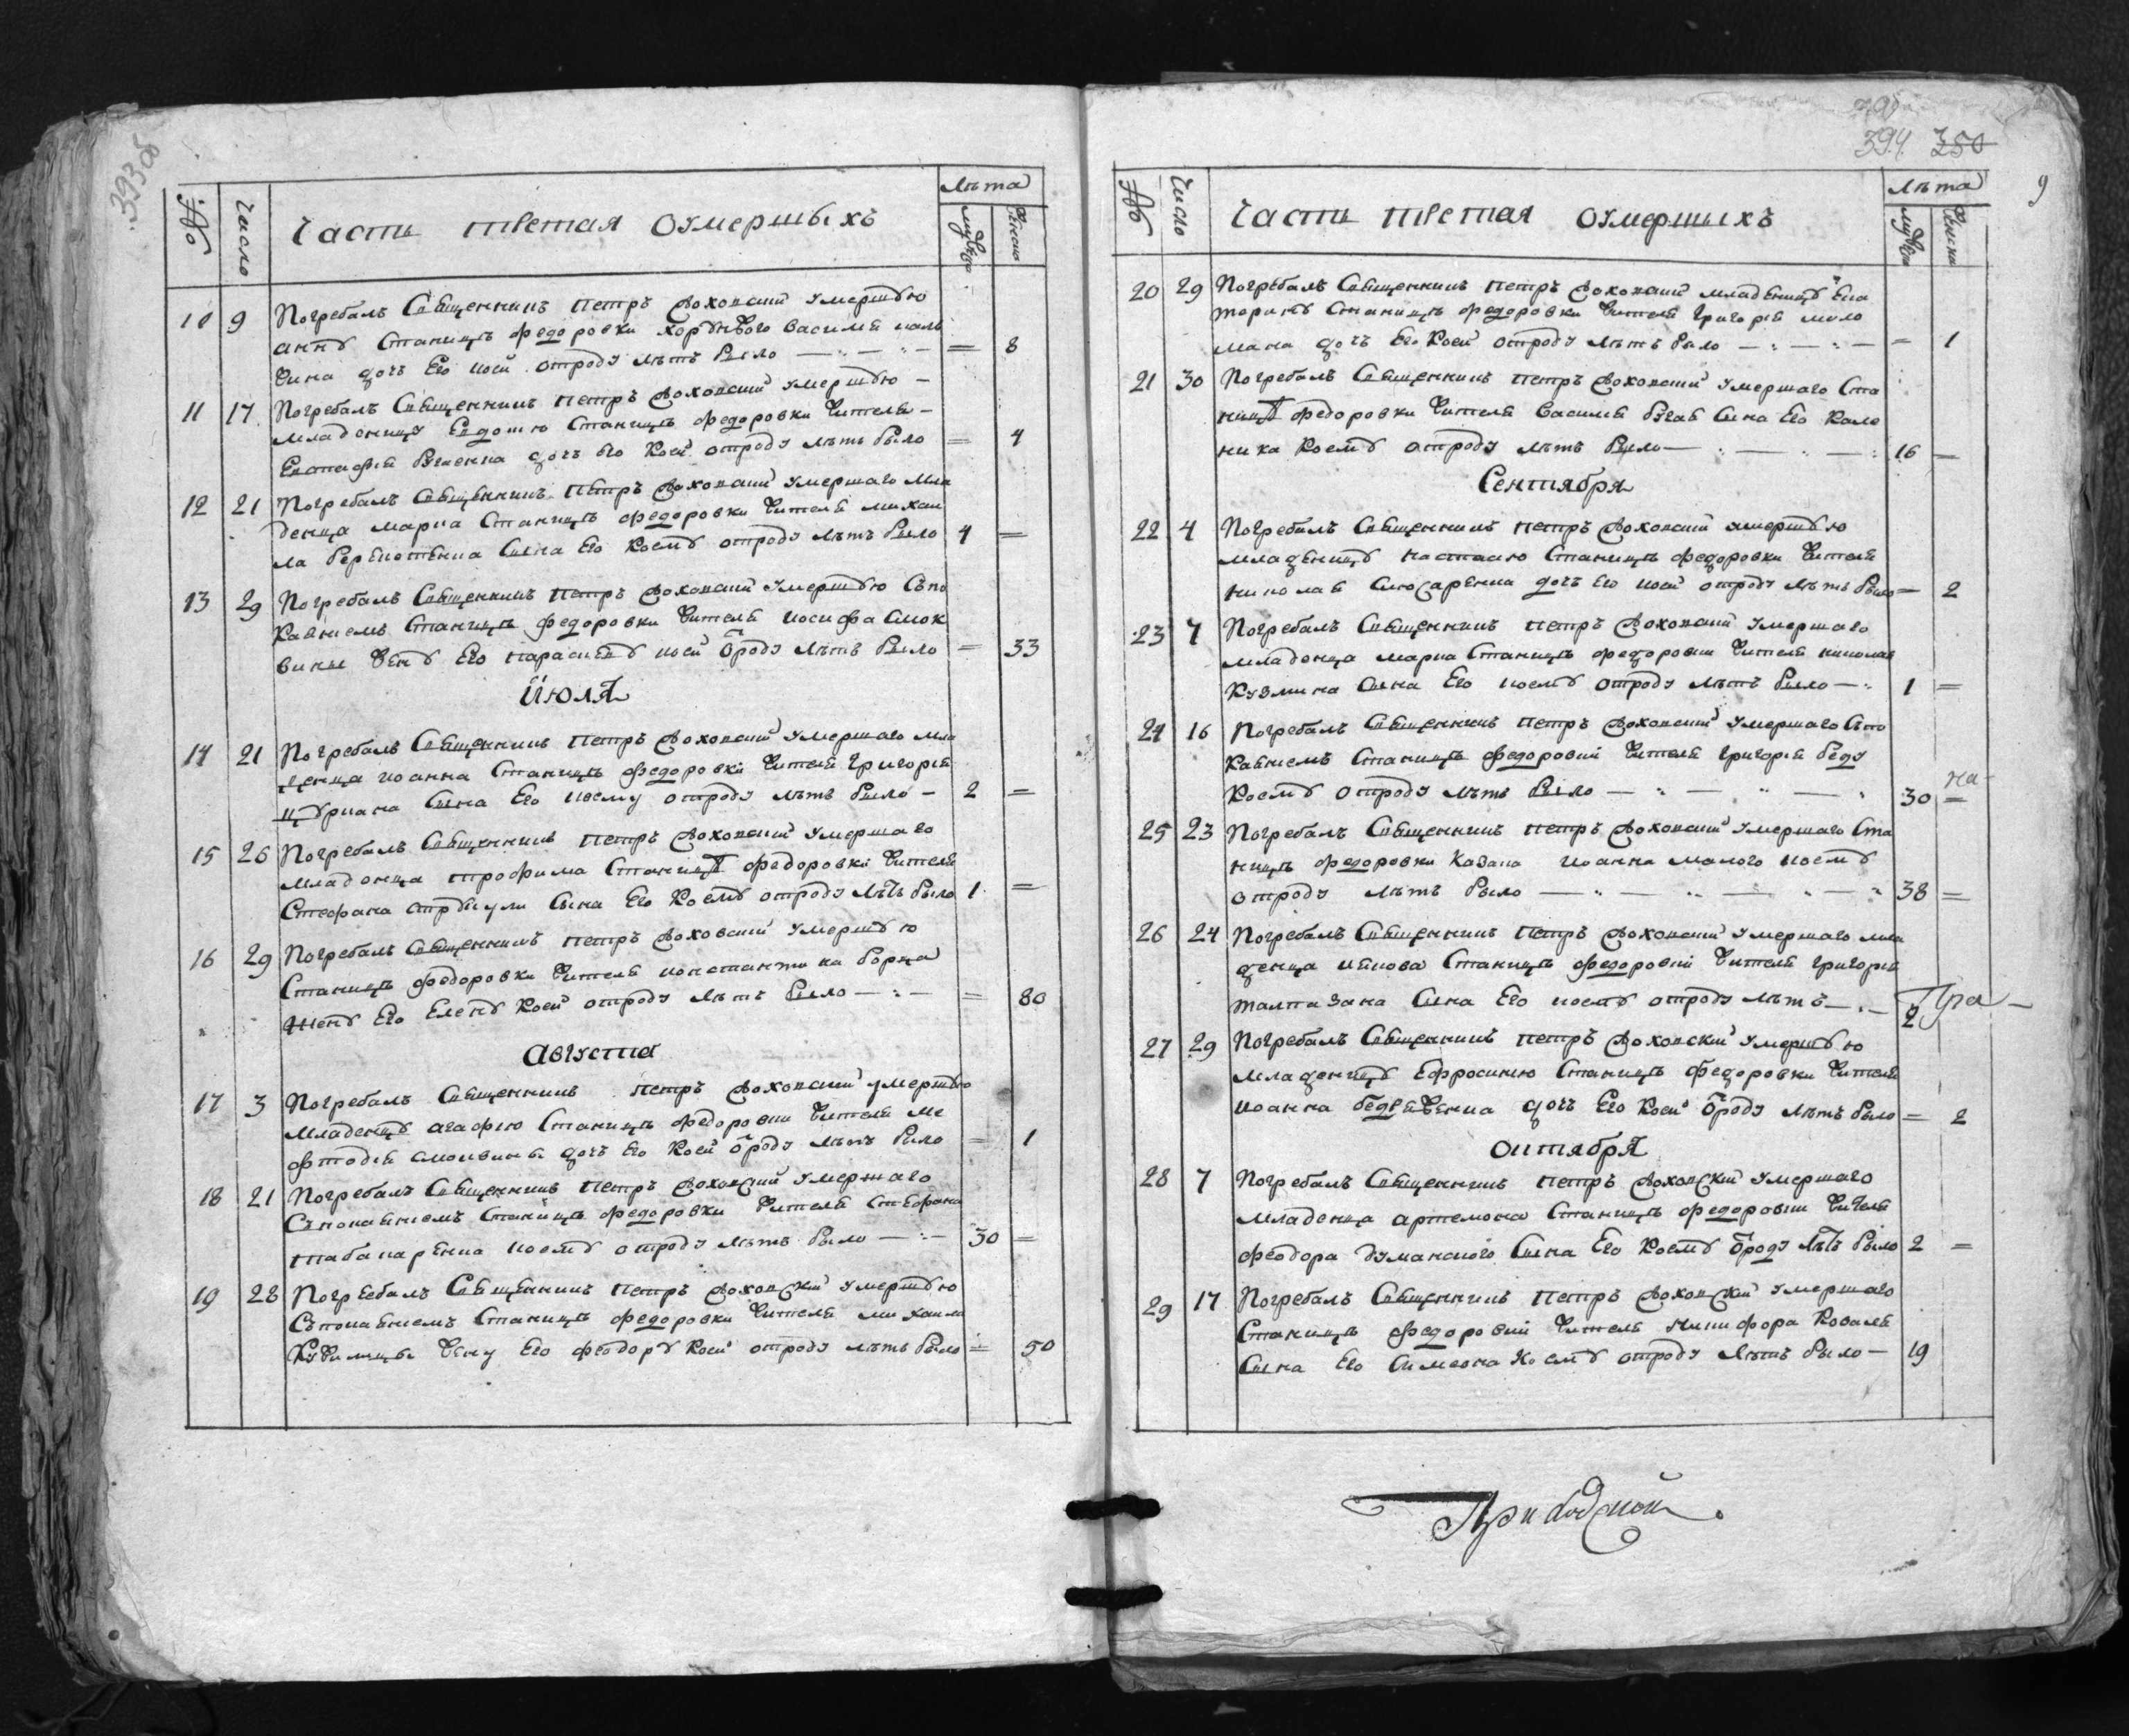 393 об
№ число Часть третая оумершыхъ лѣта мужеска женска
10 9 Погребалъ Священникъ Петръ умершую
анну Станицѣ федоровки хорунжого василия
дочь Его коей отроду лѣтъ было = 8
11 17 Погребалъ Священникъ Петръ умершую
младеницу Евдокию Станицѣ федоровки жителя
Евстафия дочь Его коей отроду лѣтъ было = 4
12 21 Погребалъ Священникъ Петръ умершаго мла
денца марка Станицѣ федоровки жителя михаи
ла Сына Его коему отроду лѣтъ было 4 =
13 29 Погребалъ Священникъ Петръ умершую Съпо
каяниемъ Станицѣ федоровки жителя иосифа смок
вины жену Его параскеву коей ѿроду лѣтъ было = 33
Июля
14 21 Погребалъ Священникъ Петръ умершаго мла
денца иоанна Станицѣ федоровки жителя Григория
цуркана Сына Его коему отроду лѣтъ было 2 =
15 26 Погребалъ Священникъ Петръ умершаго
младенца трофима Станицѣ федоровки жителя
Стефана Сына Его коему отроду лѣтъ было 1 =
16 29 Погребалъ Священникъ Петръ умершую
Станицѣ федоровки жителя константина
жену Его Елену коей отроду лѣтъ было = 80
Августа
17 3 Погребалъ Священникъ Петръ умершую
младеницу агафию Станицѣ федоровки жителя ме
фтодия смоквины дочь Его коей ѿроду лѣтъ было = 1
18 21 Погребалъ Священникъ Петръ умершаго
Съпокаяниемъ Станицѣ федоровки жителя Стефана
табачаренка коему отроду лѣтъ было 30 =
19 28 Погребалъ Священникъ Петръ умершую
Съпокаяниемъ Станицѣ федоровки жителя михаила
жену Его феодору коей отроду лѣтъ было = 50
394 350
9
№ Число Часть третая оумершыхъ лѣта мужеска женска
20 29 Погребалъ Священникъ Петръ младеницу Ека
терину Станицѣ федоровки жителя Григория
дочь Его коей отроду лѣтъ было = 1
21 30 Погребалъ Священникъ Петръ умершаго Ста
ницѣ федоровки жителя Василия Сына Его кало
ника коему отроду лѣтъ было 16 =
Сентября
22 4 Погребалъ Священникъ Петръ умершую
младеницу настасию Станицѣ федоровки жителя
николая слюсаренка дочь Его коей отроду лѣтъ было = 2
23 7 Погребалъ Священникъ Петръ умершаго
младенца марка Станицѣ федоровки жителя николая
кузмина Сына Его коему отроду лѣтъ было 1 =
24 16 Погребалъ Священникъ Петръ умершаго Съпо
каяниемъ Станицѣ федоровки жителя Григория беду
коему отроду лѣтъ было 30 =
25 23 Погребалъ Священникъ Петръ умершаго Ста
ницѣ федоровки казака иоанна малого коему
отроду лѣтъ было 38 =
26 24 Погребалъ Священникъ Петръ умершаго мла
денца иякова Станицѣ федоровки жителя Григория
талпазана Сына Его коему отроду лѣтъ 2
27 29 Погребалъ Священникъ Петръ умершую
младеницу Ефросинию Станицѣ федоровки жителя
иоанна дочь Его коей ѿроду лѣтъ было = 2
октября
28 7 Погребалъ Священникъ Петръ умершаго
младенца артемона Станицѣ федоровки жителя
феодора думанского Сына Его коему ѿроду лѣтъ было 2 =
29 17 Погребалъ Священникъ Петръ умершаго
Станицѣ федоровки жителя никифора коваля
Сына Его Симеона коему отроду лѣтъ было 19